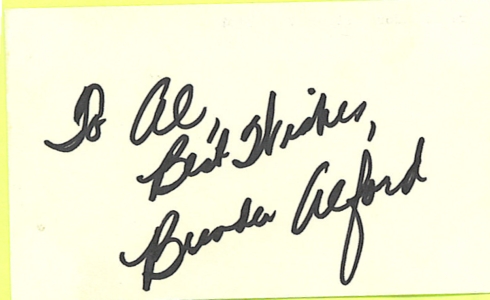 To Al,
Best Wishes,
Brenda Alford